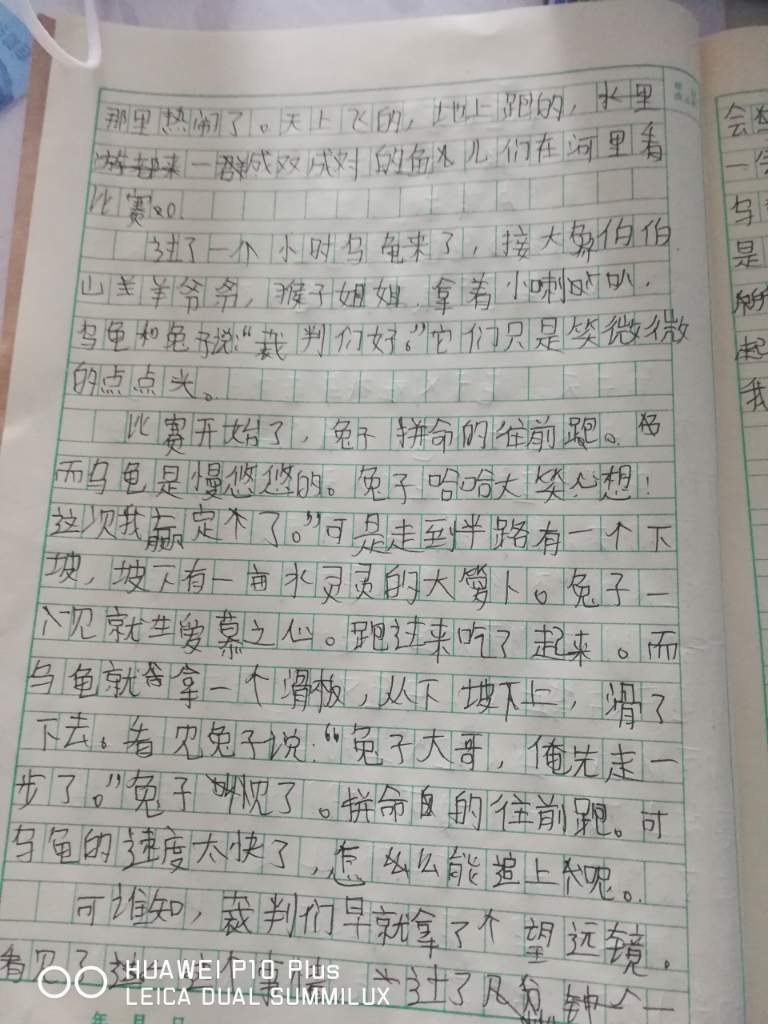 那里热闹了。天上飞的，地上跑的，水里
一群成双成对的鱼儿们在河里看
比赛。
过了一个小时乌龟来了，接大象伯伯
山羊爷爷，猴子姐姐，拿着小喇叭，
乌龟和兔子说：“裁判们好。”它们只是笑微微
的点点头。
比赛开始了，兔子拼命的往前跑。
而乌龟是慢悠悠的。兔子哈哈大笑心想！
这次我赢定不了。”可是走到半路有一个下
坡，坡下有一亩水灵灵的大萝卜。兔子一
见就生爱慕之心。跑过来吃了起来。而
乌龟就拿一个滑板，从下坡下上，滑了
下去。看见兔子说：“兔子大哥，俺先走一
步了。”兔子慌了。拼命的往前跑。可
乌龟的速度太快了，怎么么能追上呢。
可谁知，裁判们早就拿了个望远镜。
看见了这一个事情 过了几分钟
会
一
乌
是
起
我
年 月 日
HUAWEI P10 Plus
LEICA DUAL SUMMILUX